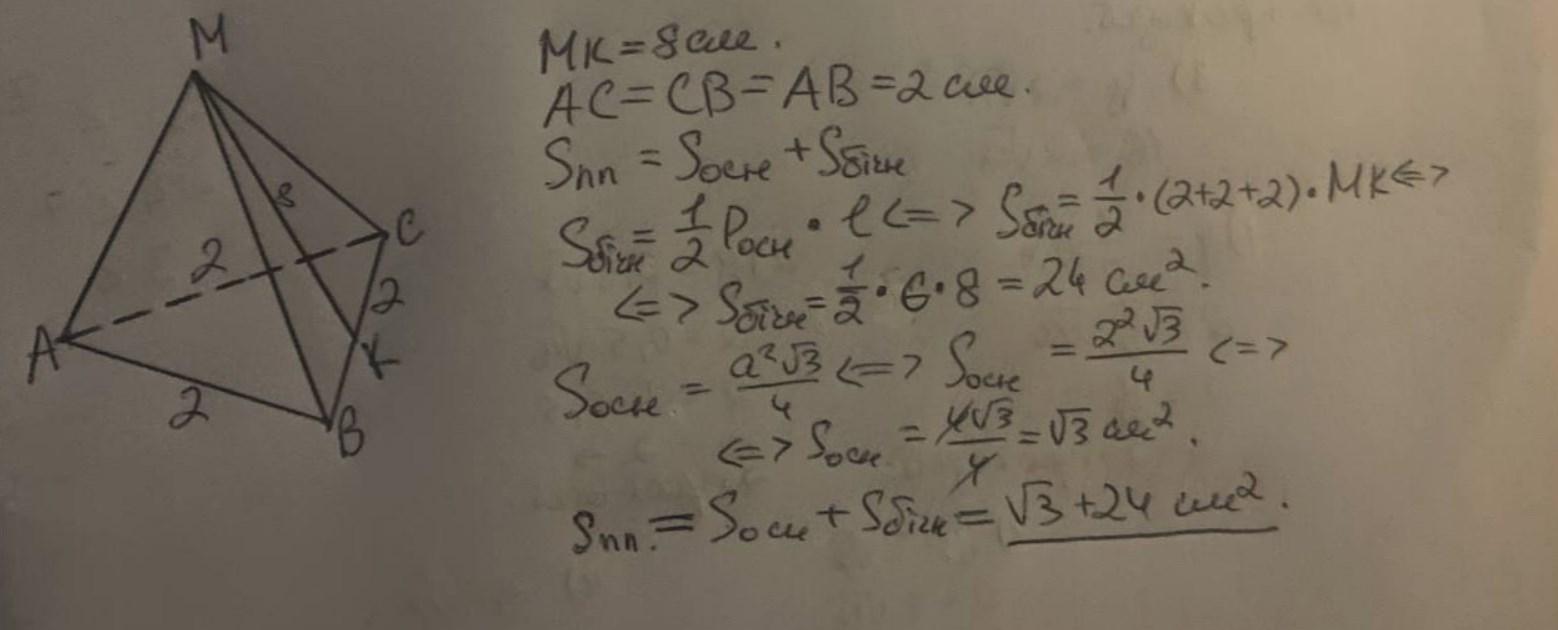 M
8
C
2
2
A
K
2
B
MK = 8 см.
AC = CB = AB = 2 см.
Sпп = Sосн + Sбічн
Sбічн = 1/2 Pосн · l <=> Sбічн = 1/2 · (2+2+2) · MK <=>
<=> Sбічн = 1/2 · 6 · 8 = 24 см².
Sосн = a²√3/4 <=> Sосн = 2²√3/4 <=>
<=> Sосн = 4√3/4 = √3 см².
Sпп. = Sосн + Sбічн = √3 + 24 см².